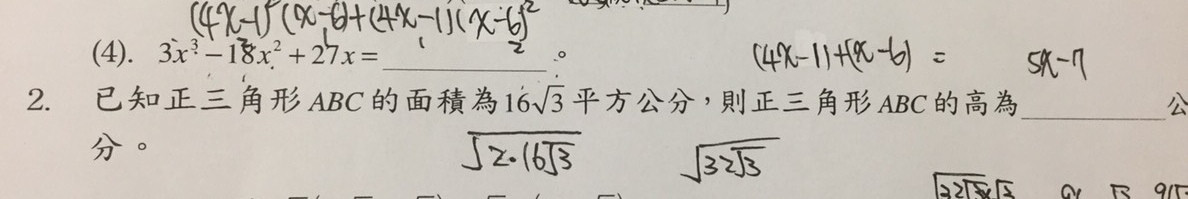 (4x-1)²(x-6)+(4x-1)(x-6)²
(4). 3x³−18x²+27x=__________。
(4x-1)+(x-6) = 5x-7
2. 已知正三角形ABC的面積為16√3平方公分，則正三角形ABC的高為__________公
分。
√(2·16√3) √(32√3)